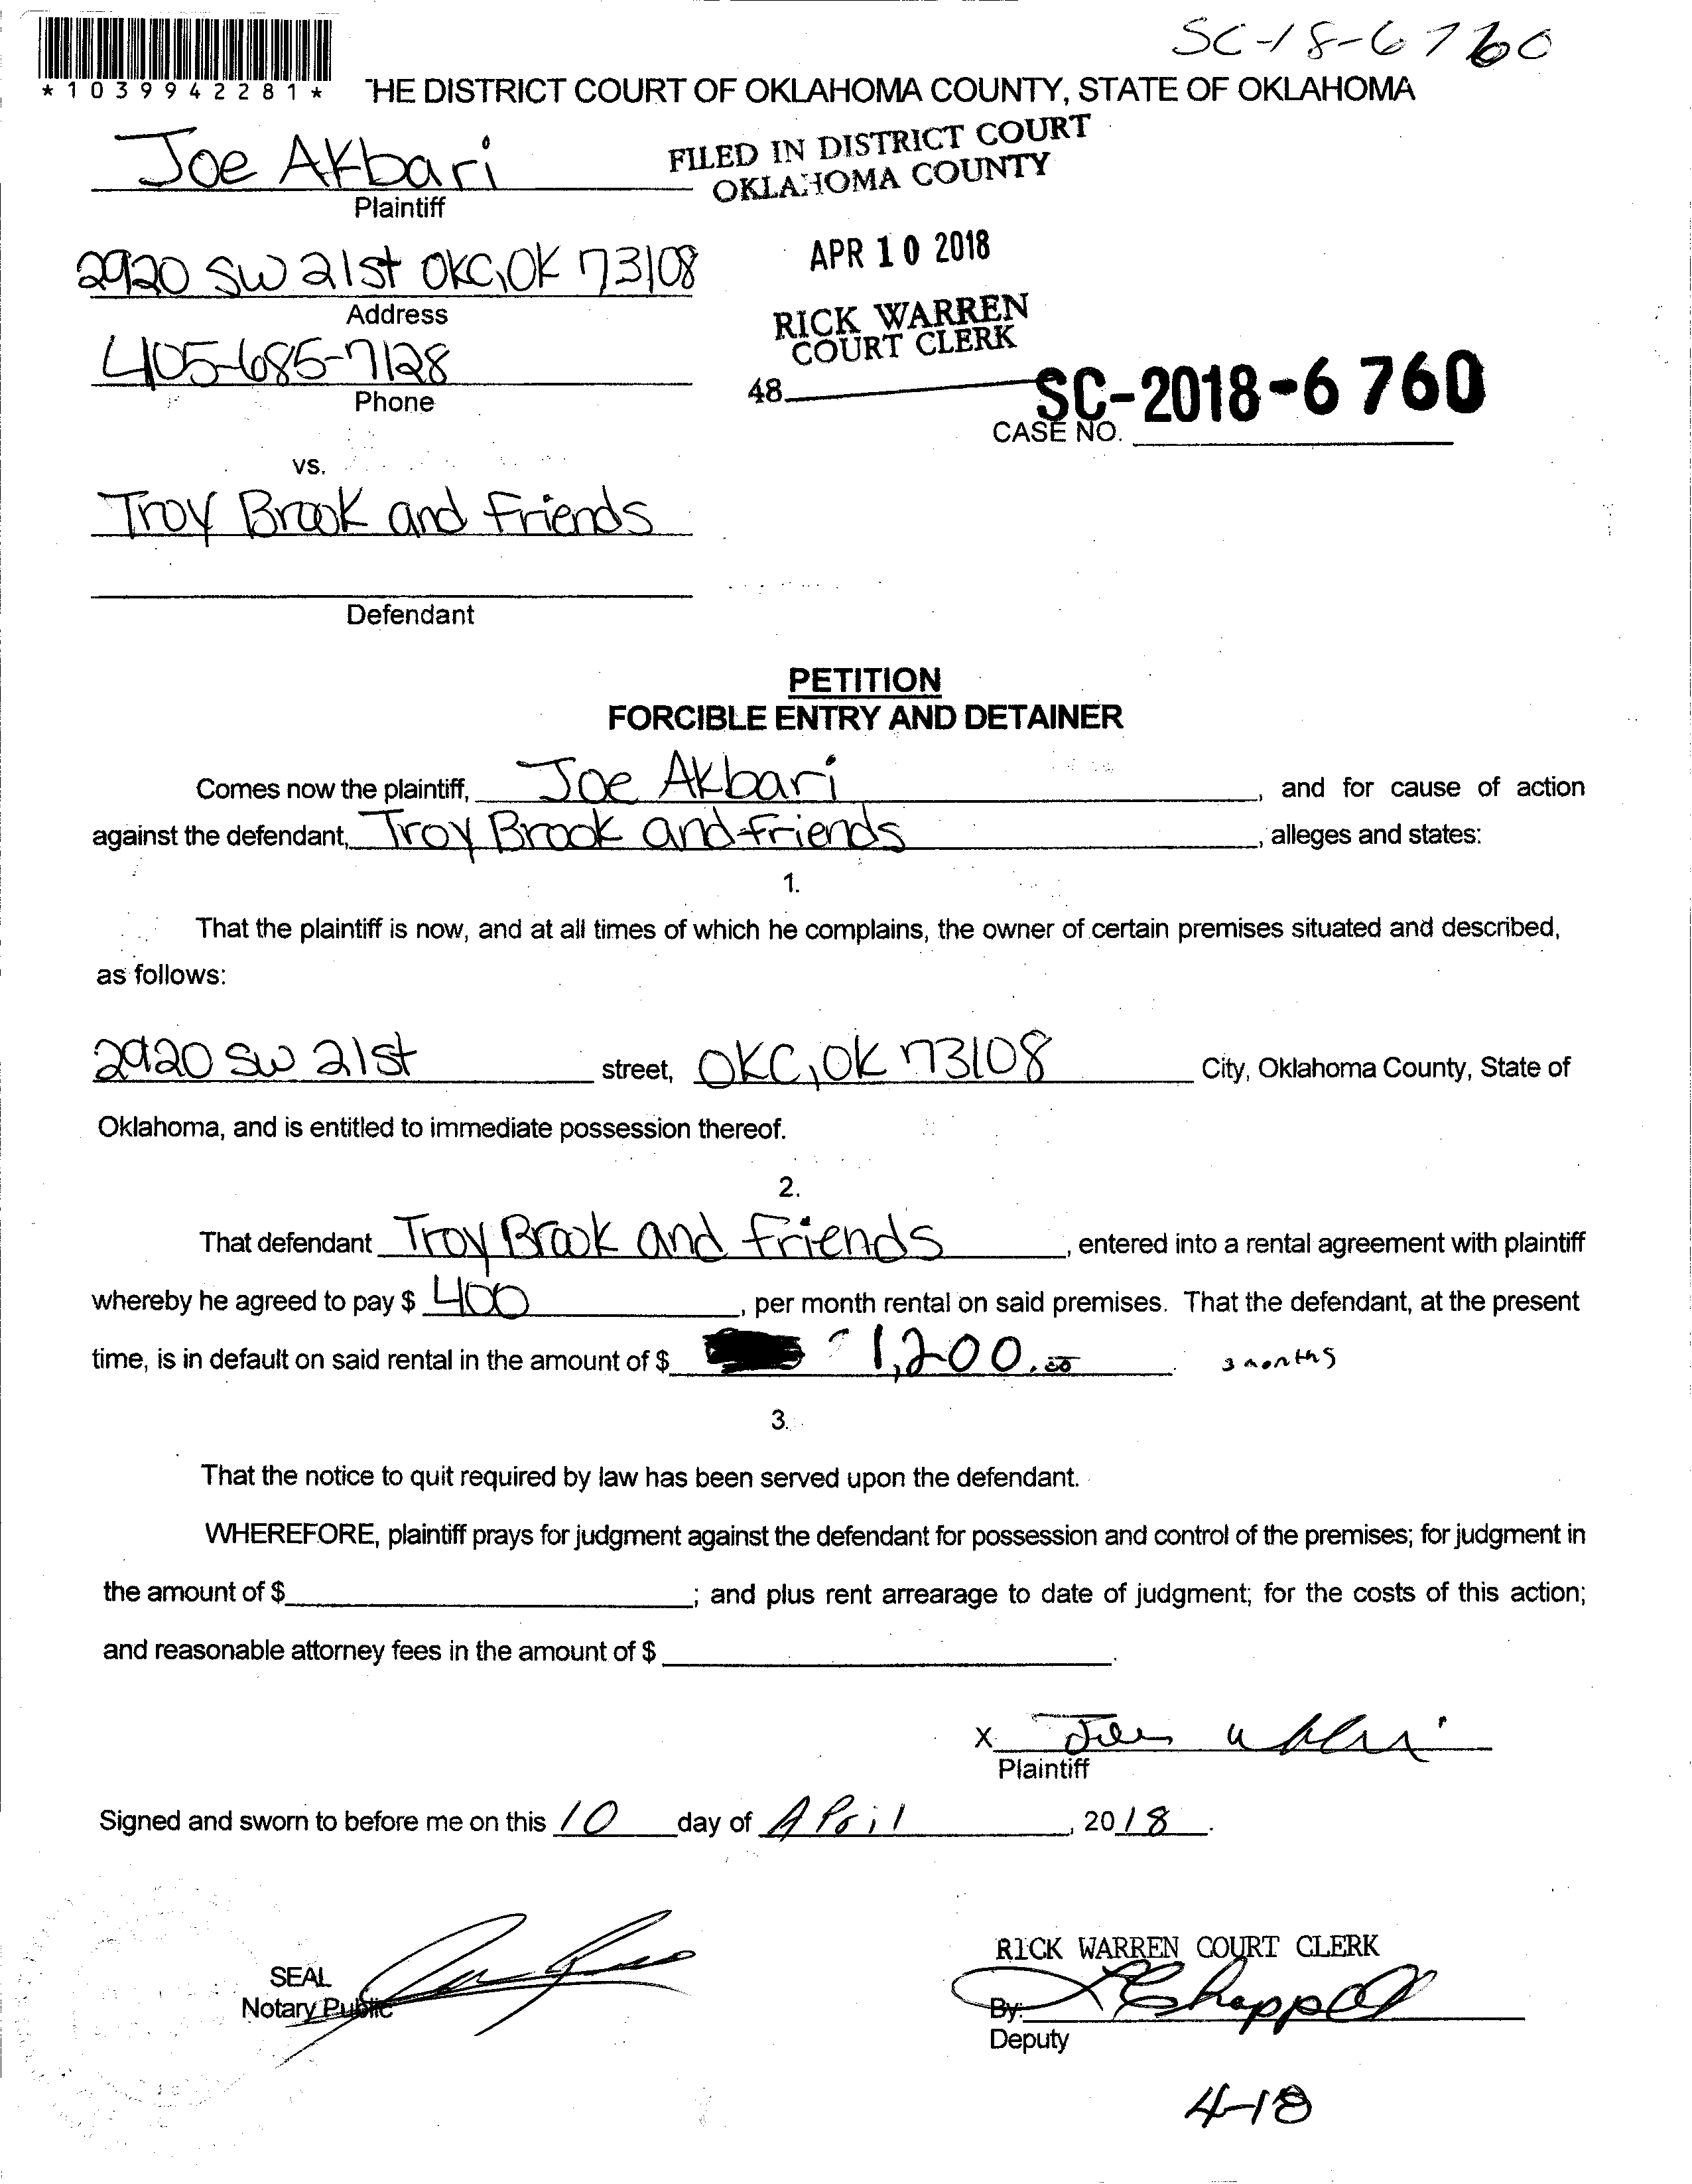 SC-18-6760
*1039942281*
THE DISTRICT COURT OF OKLAHOMA COUNTY, STATE OF OKLAHOMA
Joe Akbari
Plaintiff
FILED IN DISTRICT COURT
OKLAHOMA COUNTY
2920 SW 21st OKC, OK 73108
Address
APR 10 2018
405-685-7128
Phone
RICK WARREN
COURT CLERK
48
SC-2018-6760
CASE NO.
vs.
Troy Brook and Friends
Defendant
PETITION
FORCIBLE ENTRY AND DETAINER
Comes now the plaintiff, Joe Akbari, and for cause of action
against the defendant, Troy Brook and friends, alleges and states:
1.
That the plaintiff is now, and at all times of which he complains, the owner of certain premises situated and described,
as follows:
2920 SW 21st street, OKC, OK 73108 City, Oklahoma County, State of
Oklahoma, and is entitled to immediate possession thereof.
2.
That defendant Troy Brook and friends, entered into a rental agreement with plaintiff
whereby he agreed to pay $ 400, per month rental on said premises. That the defendant, at the present
time, is in default on said rental in the amount of $ 1,200.00. 3 months
3.
That the notice to quit required by law has been served upon the defendant.
WHEREFORE, plaintiff prays for judgment against the defendant for possession and control of the premises; for judgment in
the amount of $ ; and plus rent arrearage to date of judgment; for the costs of this action;
and reasonable attorney fees in the amount of $ .
X
Plaintiff
Signed and sworn to before me on this 10 day of April, 2018.
SEAL
Notary Public
RICK WARREN COURT CLERK
By: Chappell
Deputy
4-18